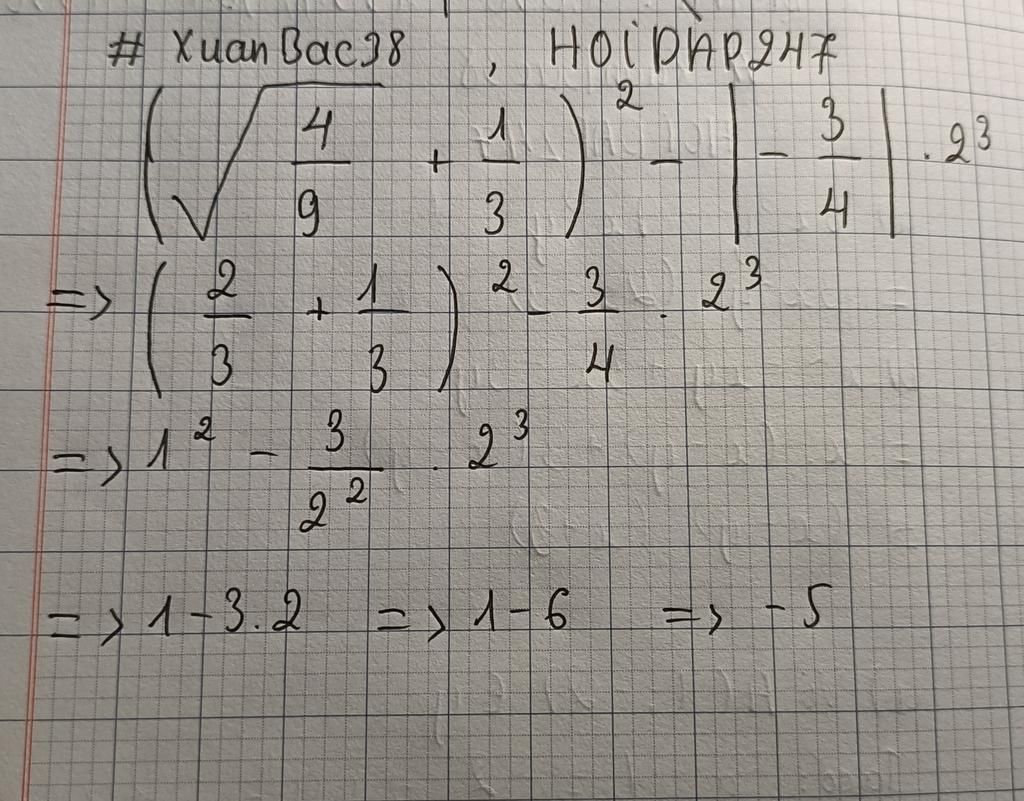 # XuanBac98 , HOiDAP247
(√4/9 + 1/3)² - |-3/4| . 2³
=> (2/3 + 1/3)² - 3/4 . 2³
=> 1² - 3/2² . 2³
=> 1 - 3.2 => 1 - 6 => -5